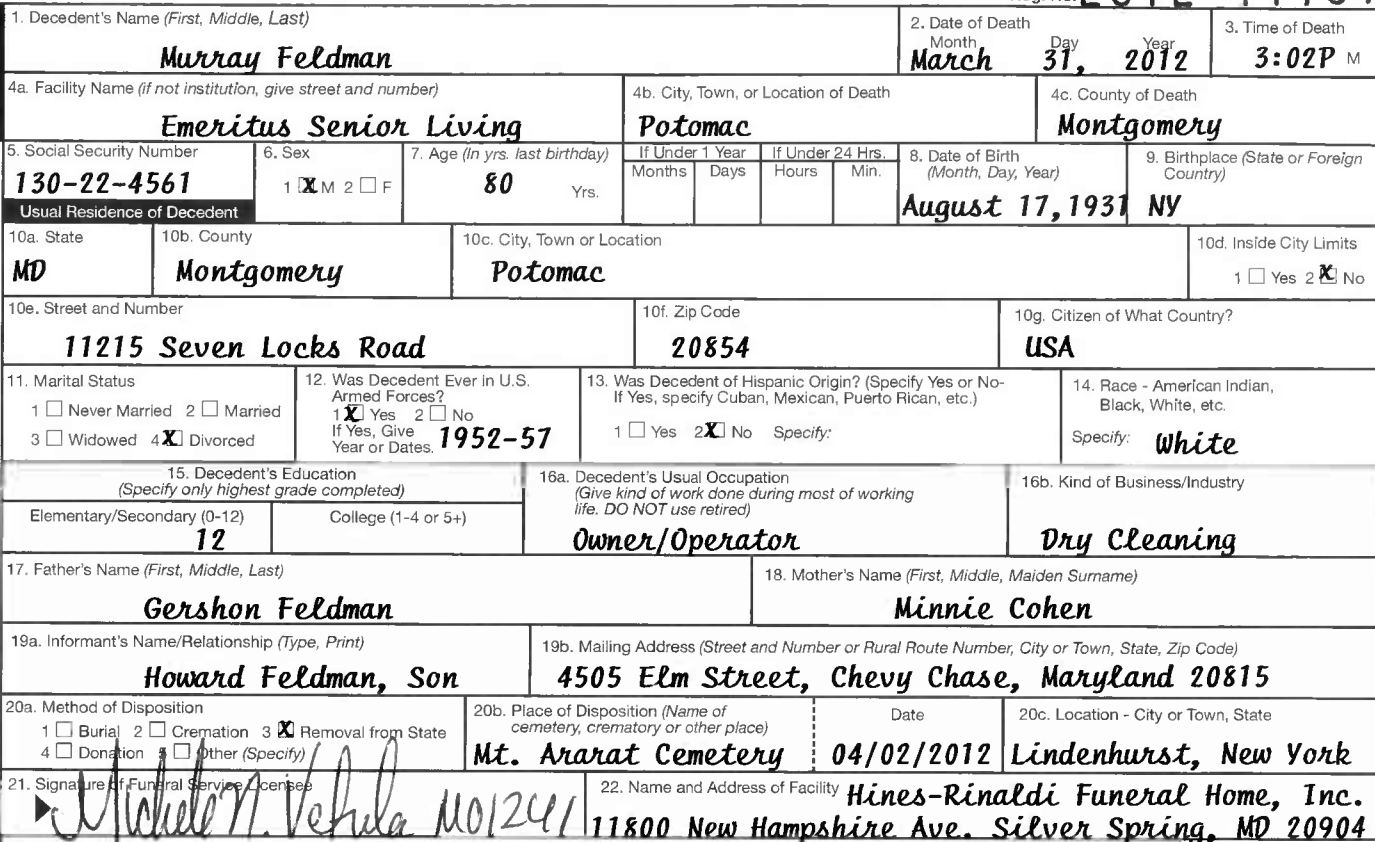 1. Decedent's Name (First, Middle, Last)
Murray Feldman
2. Date of Death
Month Day Year
March 31, 2012
3. Time of Death
3:02P M
4a. Facility Name (if not institution, give street and number)
Emeritus Senior Living
4b. City, Town, or Location of Death
Potomac
4c. County of Death
Montgomery
5. Social Security Number
130-22-4561
6. Sex
1 X M 2 ☐ F
7. Age (In yrs. last birthday)
80 Yrs.
If Under 1 Year
Months Days
If Under 24 Hrs.
Hours Min.
8. Date of Birth
(Month, Day, Year)
August 17,1931
9. Birthplace (State or Foreign
Country)
NY
Usual Residence of Decedent
10a. State
MD
10b. County
Montgomery
10c. City, Town or Location
Potomac
10d. Inside City Limits
1 ☐ Yes 2 X No
10e. Street and Number
11215 Seven Locks Road
10f. Zip Code
20854
10g. Citizen of What Country?
USA
11. Marital Status
1 ☐ Never Married 2 ☐ Married
3 ☐ Widowed 4 X Divorced
12. Was Decedent Ever in U.S.
Armed Forces?
1 X Yes 2 ☐ No
If Yes, Give
Year or Dates. 1952-57
13. Was Decedent of Hispanic Origin? (Specify Yes or No-
If Yes, specify Cuban, Mexican, Puerto Rican, etc.)
1 ☐ Yes 2 X No Specify:
14. Race - American Indian,
Black, White, etc.
Specify: White
15. Decedent's Education
(Specify only highest grade completed)
Elementary/Secondary (0-12)
12
College (1-4 or 5+)
16a. Decedent's Usual Occupation
(Give kind of work done during most of working
life. DO NOT use retired)
Owner/Operator
16b. Kind of Business/Industry
Dry Cleaning
17. Father's Name (First, Middle, Last)
Gershon Feldman
18. Mother's Name (First, Middle, Maiden Surname)
Minnie Cohen
19a. Informant's Name/Relationship (Type, Print)
Howard Feldman, Son
19b. Mailing Address (Street and Number or Rural Route Number, City or Town, State, Zip Code)
4505 Elm Street, Chevy Chase, Maryland 20815
20a. Method of Disposition
1 ☐ Burial 2 ☐ Cremation 3 X Removal from State
4 ☐ Donation 5 ☐ Other (Specify)
20b. Place of Disposition (Name of
cemetery, crematory or other place)
Mt. Ararat Cemetery
Date
04/02/2012
20c. Location - City or Town, State
Lindenhurst, New York
21. Signature of Funeral Service Licensee
Michele N. M01241
22. Name and Address of Facility Hines-Rinaldi Funeral Home, Inc.
11800 New Hampshire Ave. Silver Spring, MD 20904